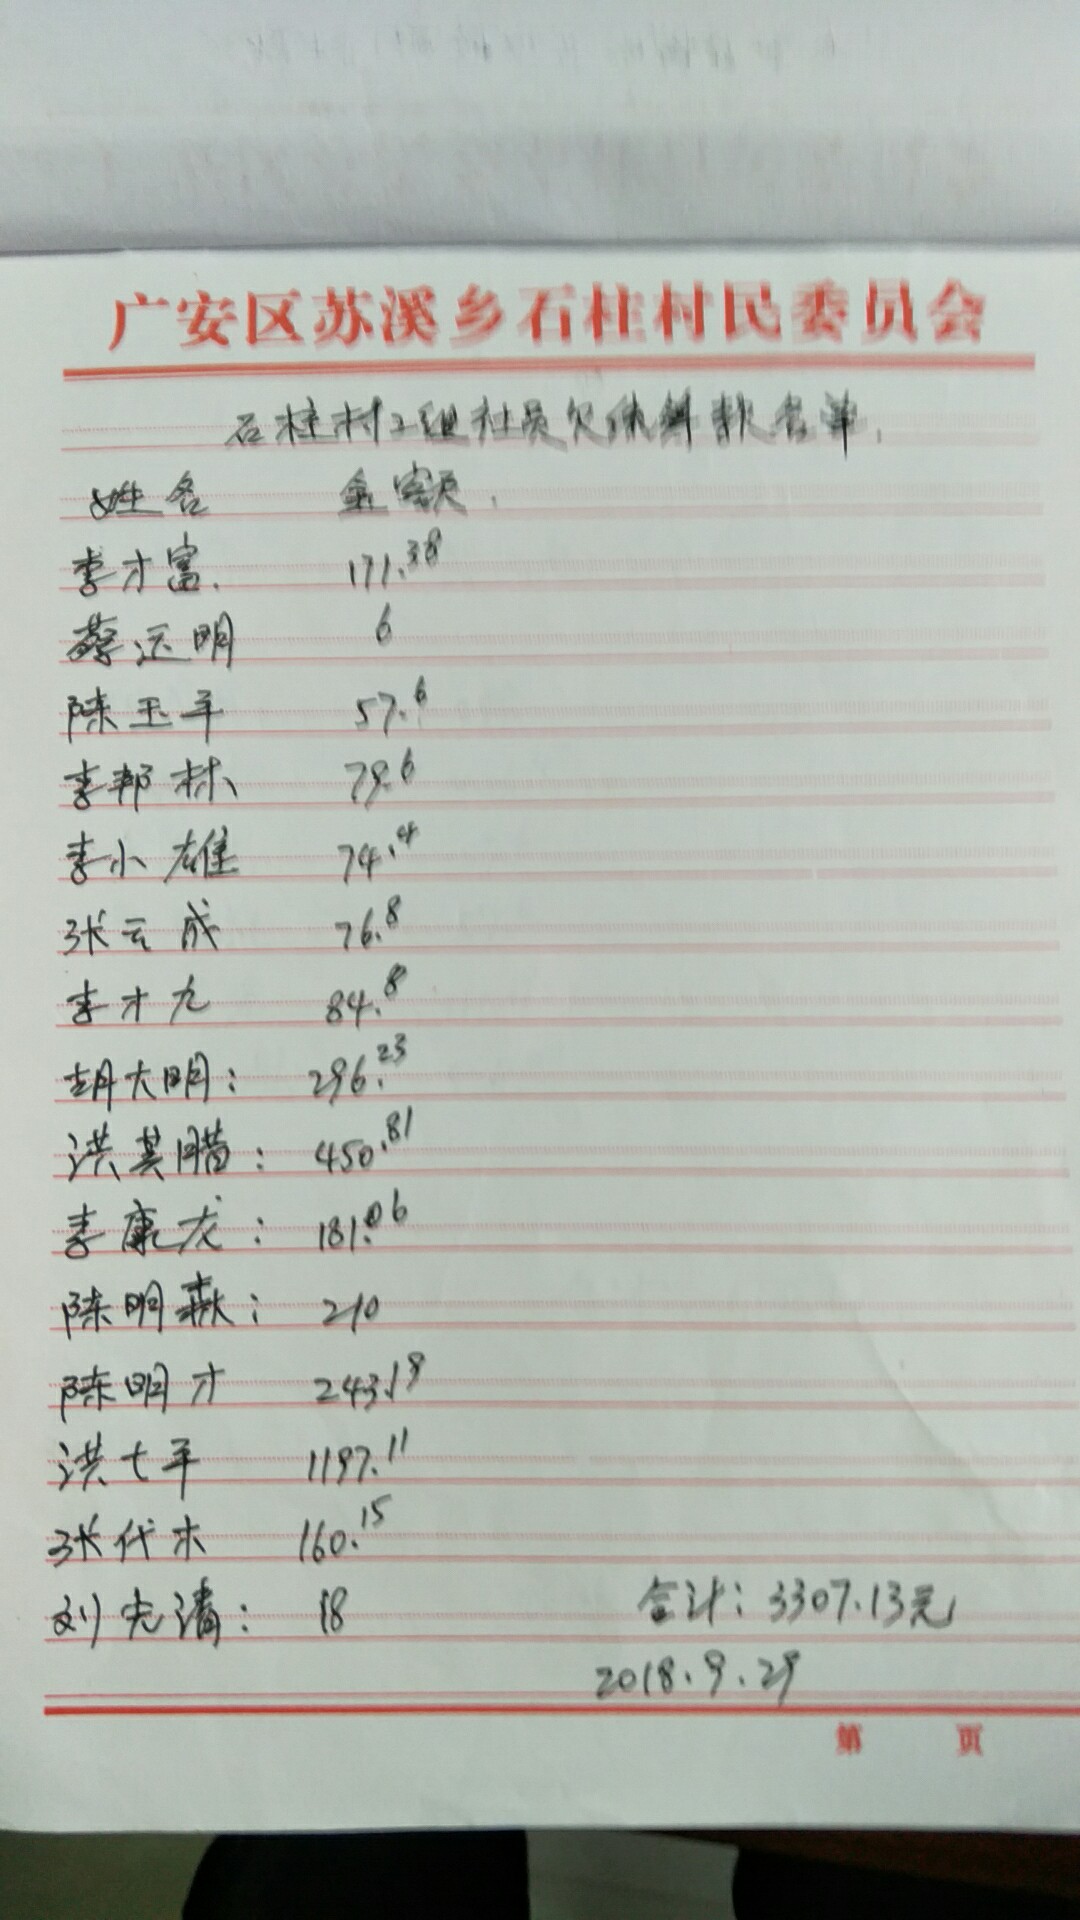 广安区苏溪乡石柱村民委员会
石柱村2组社员欠体斜款名单.
姓名 金额.
李才富. 171.38
蔡运明 6
陈玉平 57.6
李邦林 79.6
李小雄 74.4
张云成 76.8
李才九 84.8
胡大明: 296.23
洪其腊: 450.81
李康龙: 181.06
陈明 : 210
陈明才 243.19
洪七平 1197.11
张代木 160.15
刘先清: 18 合计: 3307.13元
2018.9.29
第 页